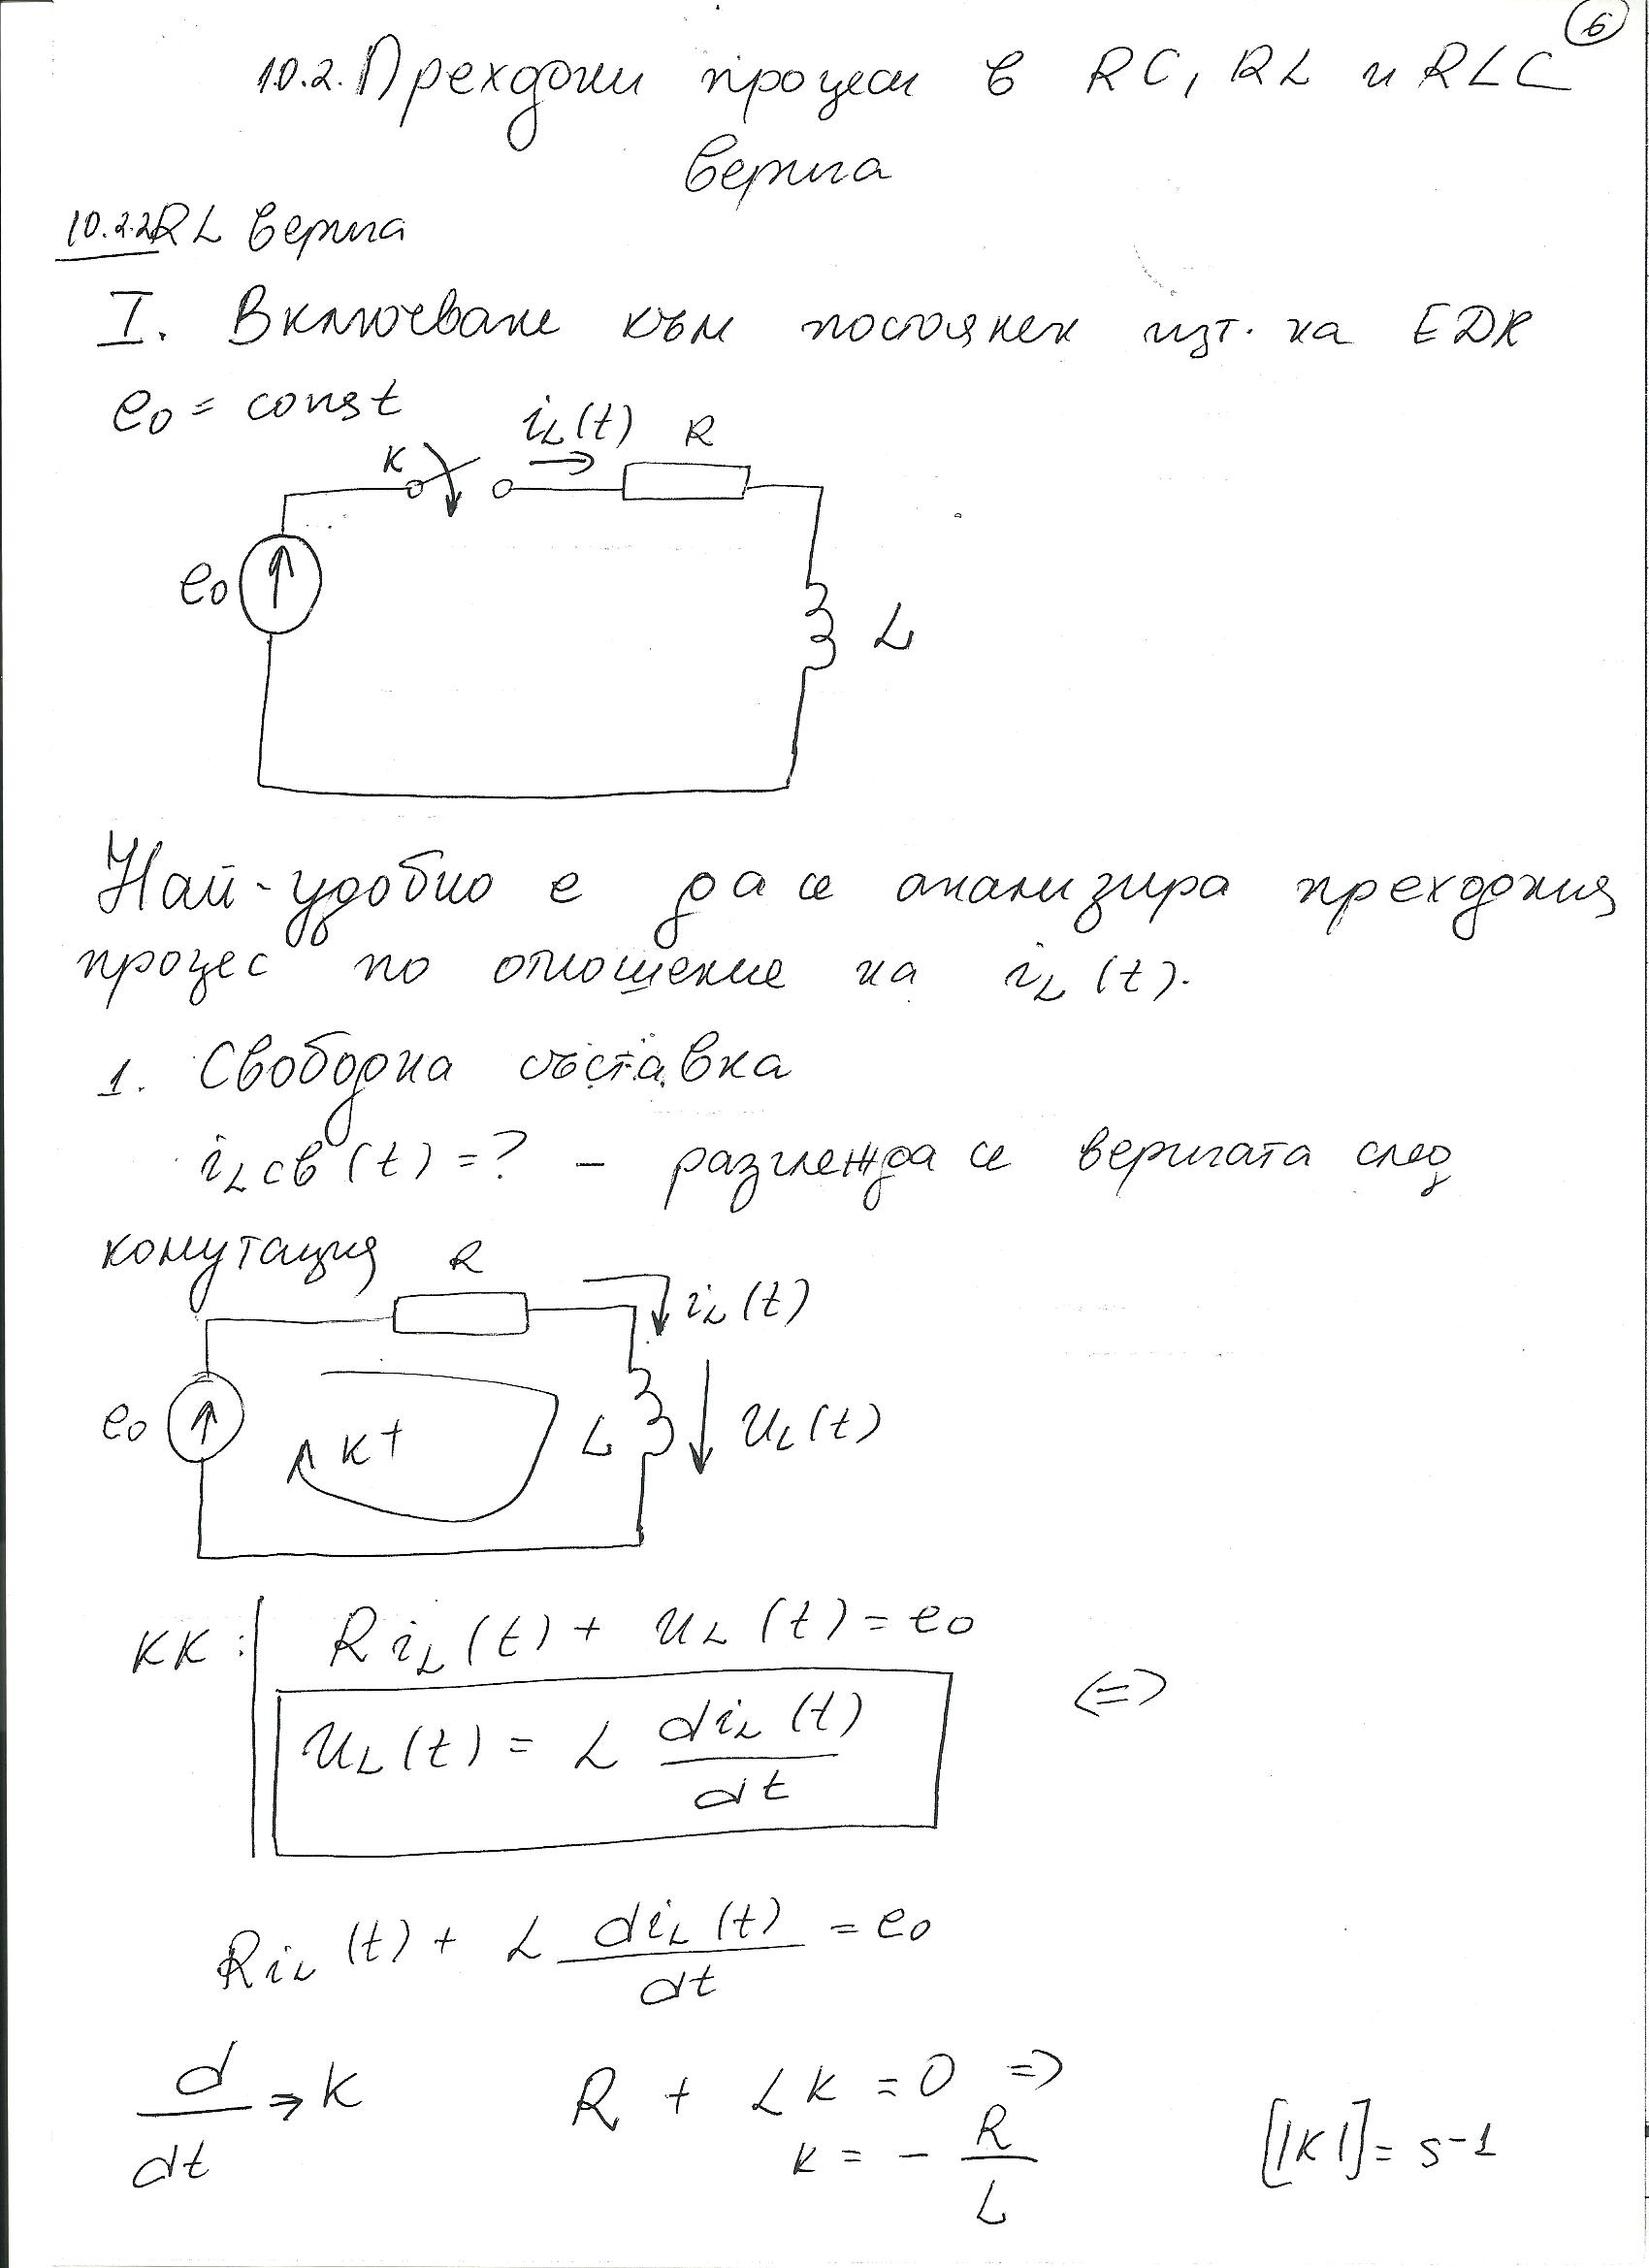 6
10.2. Преходни процеси в RC, RL и RLC
верига
10.2.2 RL верига
I. Включване към постоянен изт. на ЕДН
e0 = const
iL(t) R
K
e0
L
Най-удобно е да се анализира преходния
процес по отношение на iL(t).
1. Свободна съставка
iLсв(t) = ? – разглежда се веригата след
комутация
R
iL(t)
e0
K+
L
uL(t)
KK: RiL(t) + uL(t) = e0
uL(t) = L diL(t)/dt
<=>
RiL(t) + L diL(t)/dt = e0
d/dt → k R + Lk = 0 =>
k = - R/L [|k|] = s-1